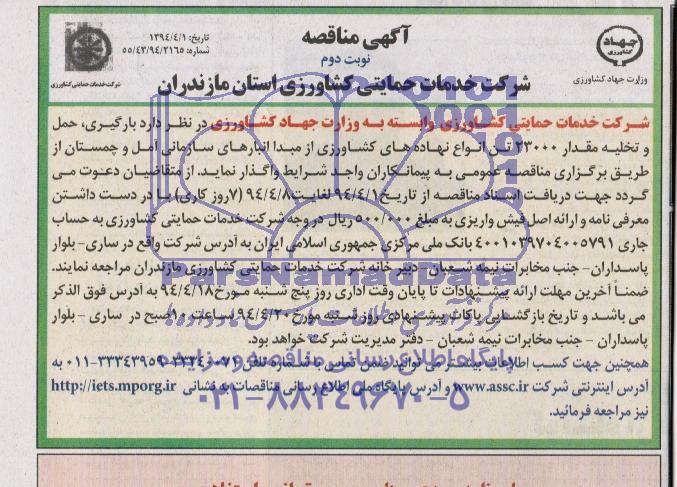 آگهی مناقصه
نوبت دوم
شرکت خدمات حمایتی کشاورزی استان مازندران
تاریخ: ۱۳۹۴/۴/۱
شماره: ۵۵/۴۳/۹۴/۲۱۶۵
شرکت خدمات حمایتی کشاورزی
جهاد
کشاورزی
وزارت جهاد کشاورزی
شرکت خدمات حمایتی کشاورزی وابسته به وزارت جهاد کشاورزی در نظر دارد بارگیری، حمل
و تخلیه مقدار ۲۳۰۰۰ تن انواع نهاده های کشاورزی از مبدا انبارهای سازمانی آمل و چمستان از
طریق برگزاری مناقصه عمومی به پیمانکاران واجد شرایط واگذار نماید. از متقاضیان دعوت می
گردد جهت دریافت اسناد مناقصه از تاریخ ۹۴/۴/۱ لغایت ۹۴/۴/۸ (۷روز کاری) با در دست داشتن
معرفی نامه و ارائه اصل فیش واریزی به مبلغ ۵۰۰/۰۰۰ ریال در وجه شرکت خدمات حمایتی کشاورزی به حساب
جاری ۴۰۰۱۰۳۹۷۰۴۰۰۵۷۹۱ بانک ملی مرکزی جمهوری اسلامی ایران به آدرس شرکت واقع در ساری- بلوار
پاسداران- جنب مخابرات نیمه شعبان- دبیر خانه شرکت خدمات حمایتی کشاورزی مازندران مراجعه نمایند.
ضمناً آخرین مهلت ارائه پیشنهادات تا پایان وقت اداری روز پنج شنبه مورخ ۹۴/۴/۱۸ به آدرس فوق الذکر
می باشد و تاریخ بازگشایی پاکات پیشنهادی روز شنبه مورخ ۹۴/۴/۲۰ ساعت ۱۰ صبح در ساری - بلوار
پاسداران - جنب مخابرات نیمه شعبان - دفتر مدیریت شرکت خواهد بود.
همچنین جهت کسب اطلاعات بیشتر می توانید ضمن تماس با شماره تلفن ۰۱۱-۳۳۳۴۳۹۵۹ به
آدرس اینترنتی شرکت www.assc.ir و آدرس پایگاه ملی اطلاع رسانی مناقصات به نشانی http://iets.mporg.ir
نیز مراجعه فرمائید.
ParsNamadData
پایگاه اطلاع رسانی مناقصه و مزایده
۰۲۱-۸۸۳۴۹۶۷۰-۵